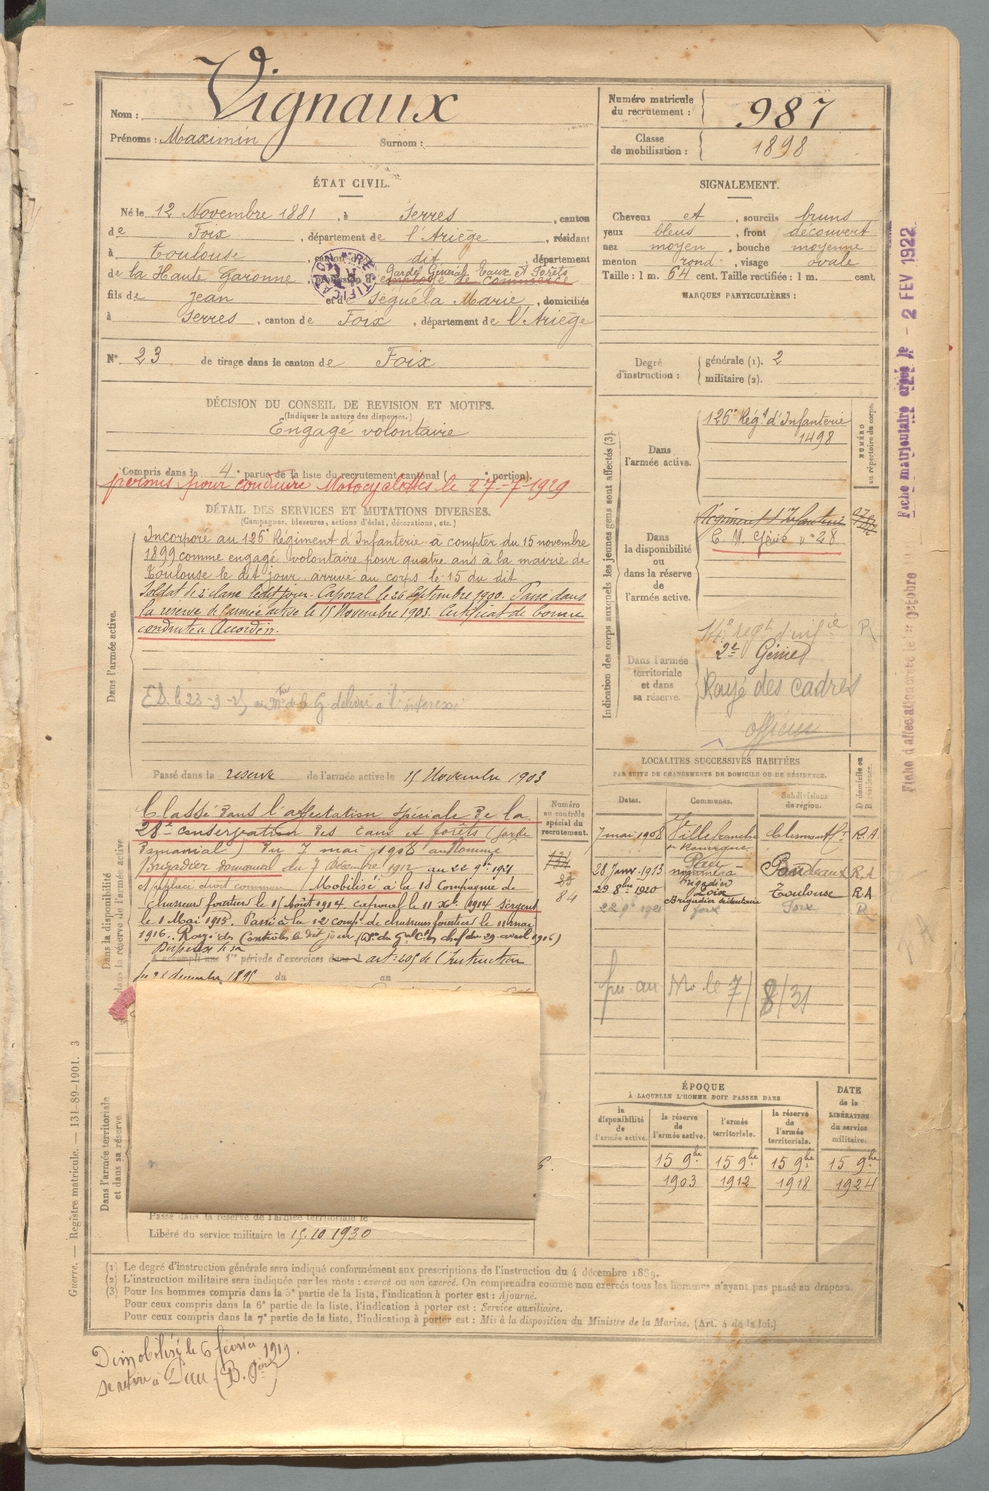 Nom : Vignaux
Prénoms : Maximin Surnom :
Numéro matricule du recrutement : 987
Classe de mobilisation : 1898
ÉTAT CIVIL.
Né le 12 Novembre 1881, à Serres, canton
de Foix, département de l'Ariège, résidant
à Toulouse, canton du dit, département
de la Haute Garonne, Garde Général Eaux et Forêts
employé de commerce
RECTIFICATION
fils de Jean et de Séguéla Marie, domiciliés
à Serres, canton de Foix, département de l'Ariège
N° 23 de tirage dans le canton de Foix
SIGNALEMENT.
Cheveux et, sourcils bruns
yeux bleus, front découvert
nez moyen, bouche moyenne
menton rond, visage ovale
Taille : 1 m. 64 cent. Taille rectifiée : 1 m. cent.
MARQUES PARTICULIÈRES :
Degré d'instruction : générale (1). 2
militaire (2).
DÉCISION DU CONSEIL DE REVISION ET MOTIFS.
(Indiquer la nature des dispenses.)
Engagé volontaire
Compris dans la 4e partie de la liste du recrutement cantonal ( e portion).
permis pour conduire Motocyclettes le 27-7-1929
DÉTAIL DES SERVICES ET MUTATIONS DIVERSES.
(Campagnes, blessures, actions d'éclat, décorations, etc.)
Dans l'armée active.
Incorporé au 126e Régiment d'Infanterie à compter du 15 novembre
1899 comme engagé volontaire pour quatre ans à la mairie de
Toulouse le dit jour, arrivé au corps le 15 du dit
Soldat de 2e classe le dit jour. Caporal le 26 septembre 1900. Passé dans
la réserve de l'armée active le 15 Novembre 1903. Certificat de bonne
conduite Accordé.
Passé dans la réserve de l'armée active le 15 Novembre 1903
Indication des corps auxquels les jeunes gens sont affectés (3).
NUMÉRO au répertoire du corps.
Dans l'armée active.
126e Régt d'Infanterie
1498
Dans la disponibilité ou dans la réserve de l'armée active.
Régiment d'Infanterie
E. M. Génie n° 28
Dans l'armée territoriale et dans sa réserve.
14e regt d'inf ie R
2e Génie
Rayé des cadres
officier
Dans la disponibilité et dans la réserve de l'armée active
Classé dans l'affectation spéciale de la
28e conservation des Eaux et forêts (garde
Domanial) Du 7 mai 1908 a nommé
Brigadier domanial du 7 Décembre 1912 au 22 9bre 1921
Replacé droit commun (Mobilisé à la 1e Compagnie de
chasseurs forestiers le 1er Août 1914 caporal le 11 Xbre 1914 sergent
le 1 Mai 1915. Passé à la 12 comp. de chasseurs forestiers le 11 mai
1916. Rayé des Contrôles le dit jour
Dispensé de sa
A accompli une 1re période d'exercices dans art. 205 de l'Instruction
du 28 décembre 1895 du au
Numéro au contrôle spécial du recrutement.
84
LOCALITÉS SUCCESSIVES HABITÉES
PAR SUITE DE CHANGEMENTS DE DOMICILE OU DE RÉSIDENCE.
Dates. Communes. Subdivisions de région. D domicile ou R résidence.
7 mai 1908 Villefranche de Rouergue R.A
28 Janv. 1913 Pau Bordeaux R.A
29 8bre 1920 Foix Toulouse RA
22 9bre 1921 Foix Foix R
ÉPOQUE
À LAQUELLE L'HOMME DOIT PASSER DANS
la disponibilité de l'armée active. la réserve de l'armée active. l'armée territoriale. la réserve de l'armée territoriale.
DATE de la LIBÉRATION du service militaire.
15 9bre 15 9bre 15 9bre 15 9bre
1903 1912 1918 1924
Dans l'armée territoriale et dans sa réserve.
Passé dans la réserve de l'armée territoriale le
Libéré du service militaire le 15.10 1930
(1) Le degré d'instruction générale sera indiqué conformément aux prescriptions de l'instruction du 4 décembre 1889.
(2) L'instruction militaire sera indiquée par les mots : exercé ou non exercé. On comprendra comme non exercés tous les hommes n'ayant pas passé au drapeau.
(3) Pour les hommes compris dans la 5e partie de la liste, l'indication à porter est : Ajourné.
Pour ceux compris dans la 6e partie de la liste, l'indication à porter est : Service auxiliaire.
Pour ceux compris dans la 7e partie de la liste, l'indication à porter est : Mis à la disposition du Ministre de la Marine. (Art. 4 de la loi.)
Démobilisé le 6 février 1919.
se retire à Pau
Guerre. — Registre matricule. — 131-89-1901. 3
Fiche matriculaire créée le - 2 FEV 1922
Fiche d'affectation créée le 1er Octobre